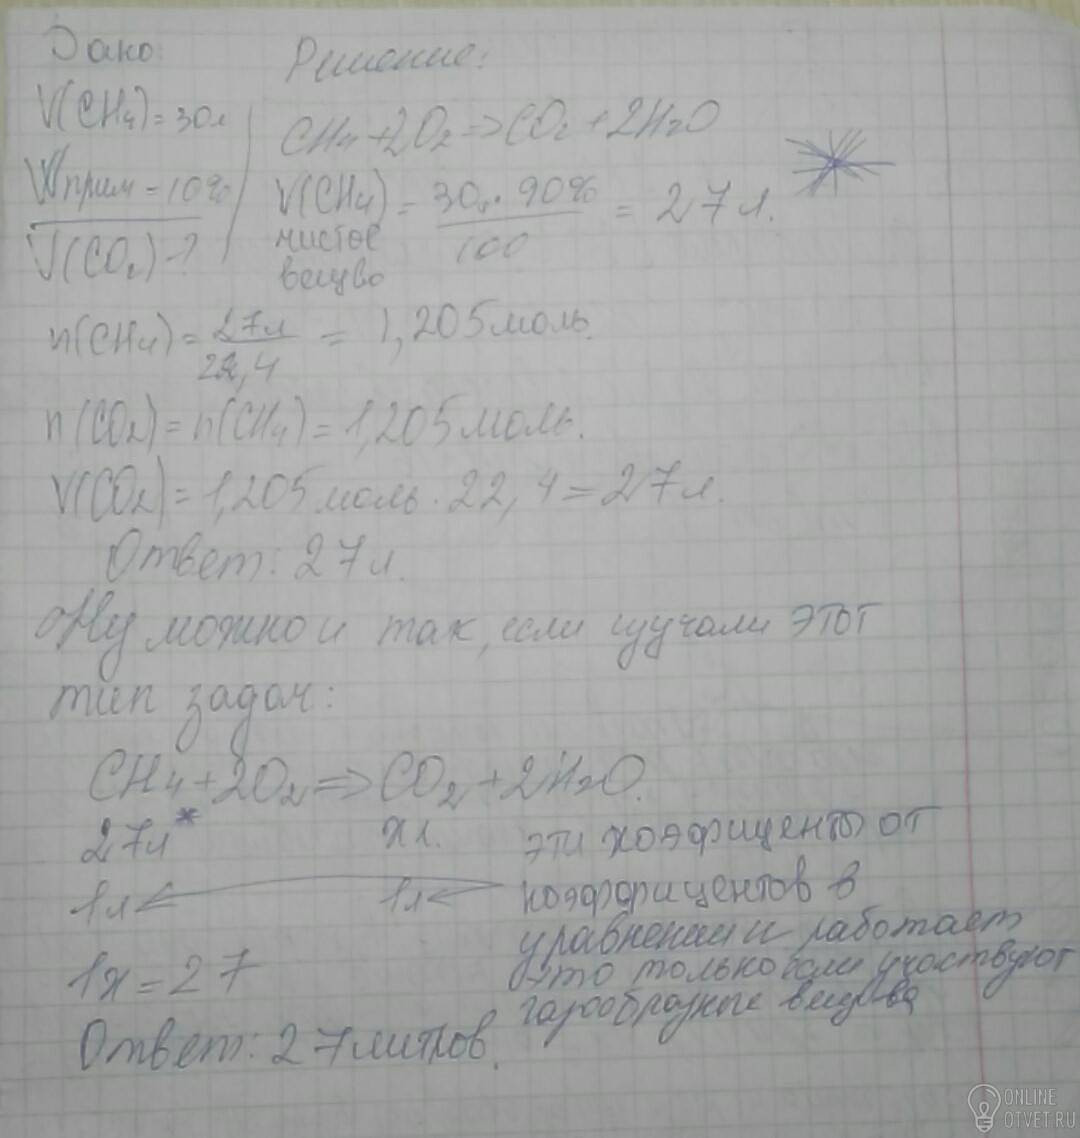 Дано:
Решение:
V(CH4)=30л
CH4+2O2=>CO2+2H2O
Wприм=10%
V(CO2)-?
V(CH4) = 30л·90% / 100 = 27л.
чистое
вещво
n(CH4)= 27л / 22,4 = 1,205моль.
n(CO2)=n(CH4)=1,205моль.
V(CO2)=1,205моль·22,4=27л.
Ответ: 27л.
Ну можно и так, если изучали этот
тип задач:
CH4+2O2=>CO2+2H2O.
27л* xл.
1л 1л
эти коэфиценты от
коэффицентов в
уравнении и работает
это только если участвуют
газообразные вещ-ва
1x=27
Ответ: 27литров.
ONLINE
OTVET.RU